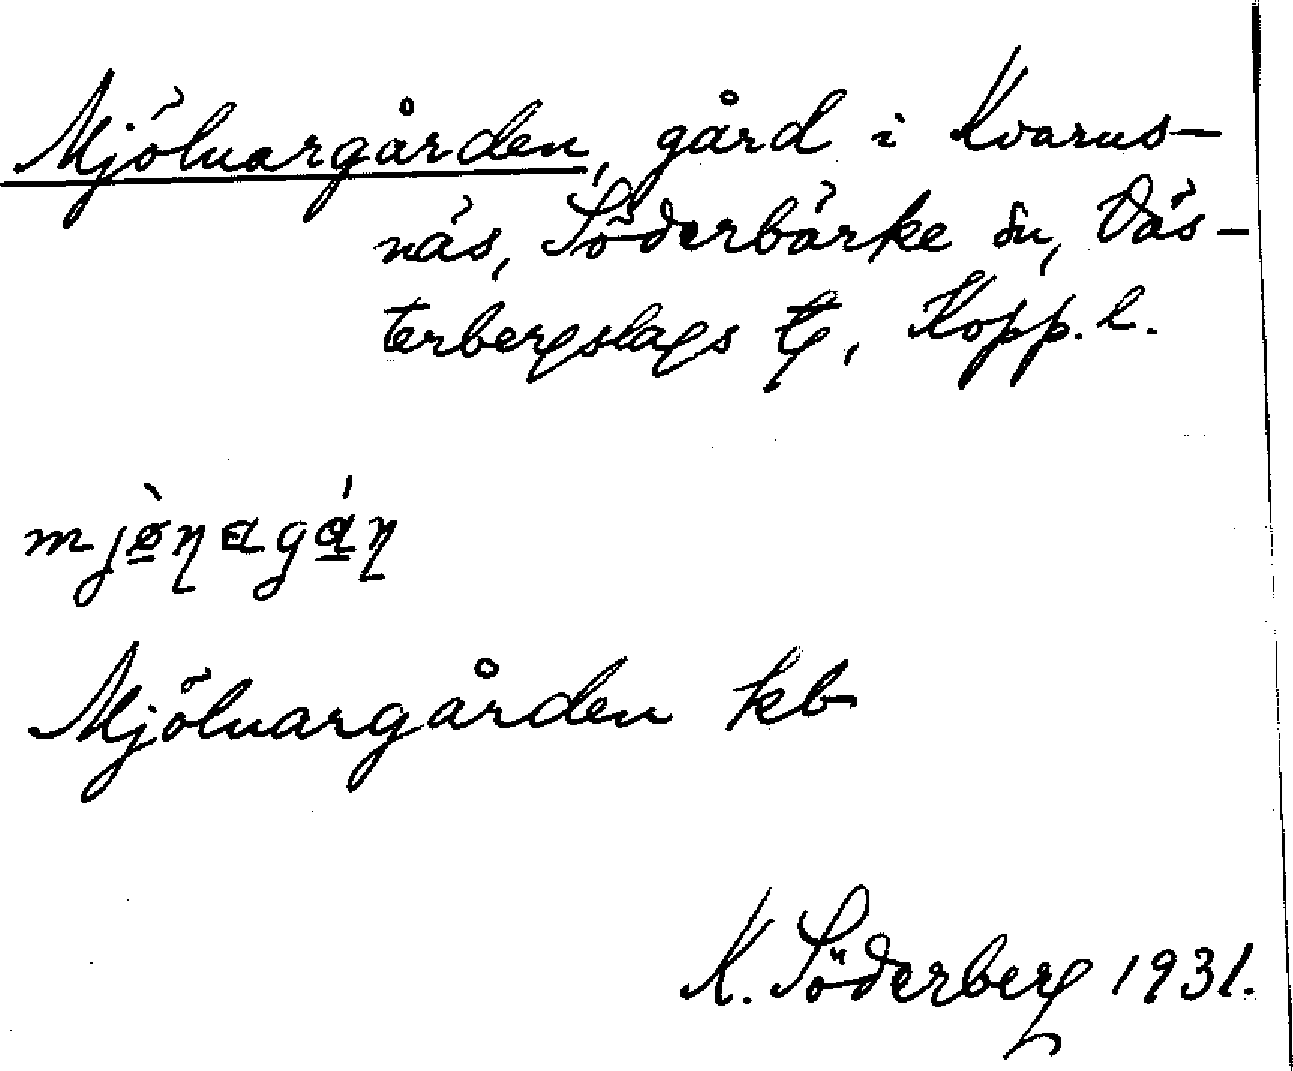 Mjölnargården, gård i Kvarns-
näs, Söderbärke sn, Väs-
terbergslags tg, Kopp. l.
mjø̀ɳagɑ́ɳ
Mjölnargården kb
K. Söderberg 1931.